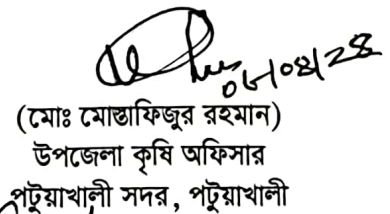 ০৮/০৪/২৪
(মোঃ মোস্তাফিজুর রহমান)
উপজেলা কৃষি অফিসার
পটুয়াখালী সদর, পটুয়াখালী